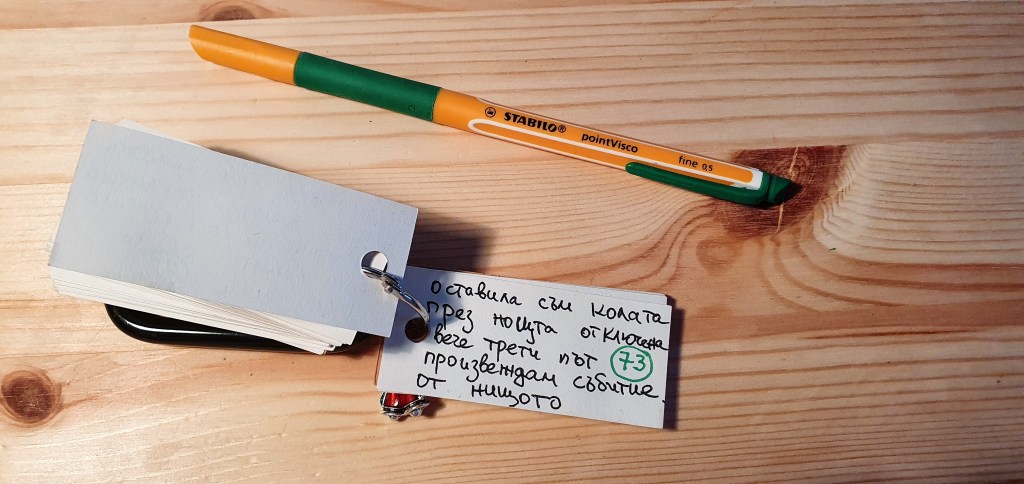 STABILO® pointVisco fine 0,5
оставила съм колата
през нощта отключена
вече трети път 73
произвеждам събитие
от нищото